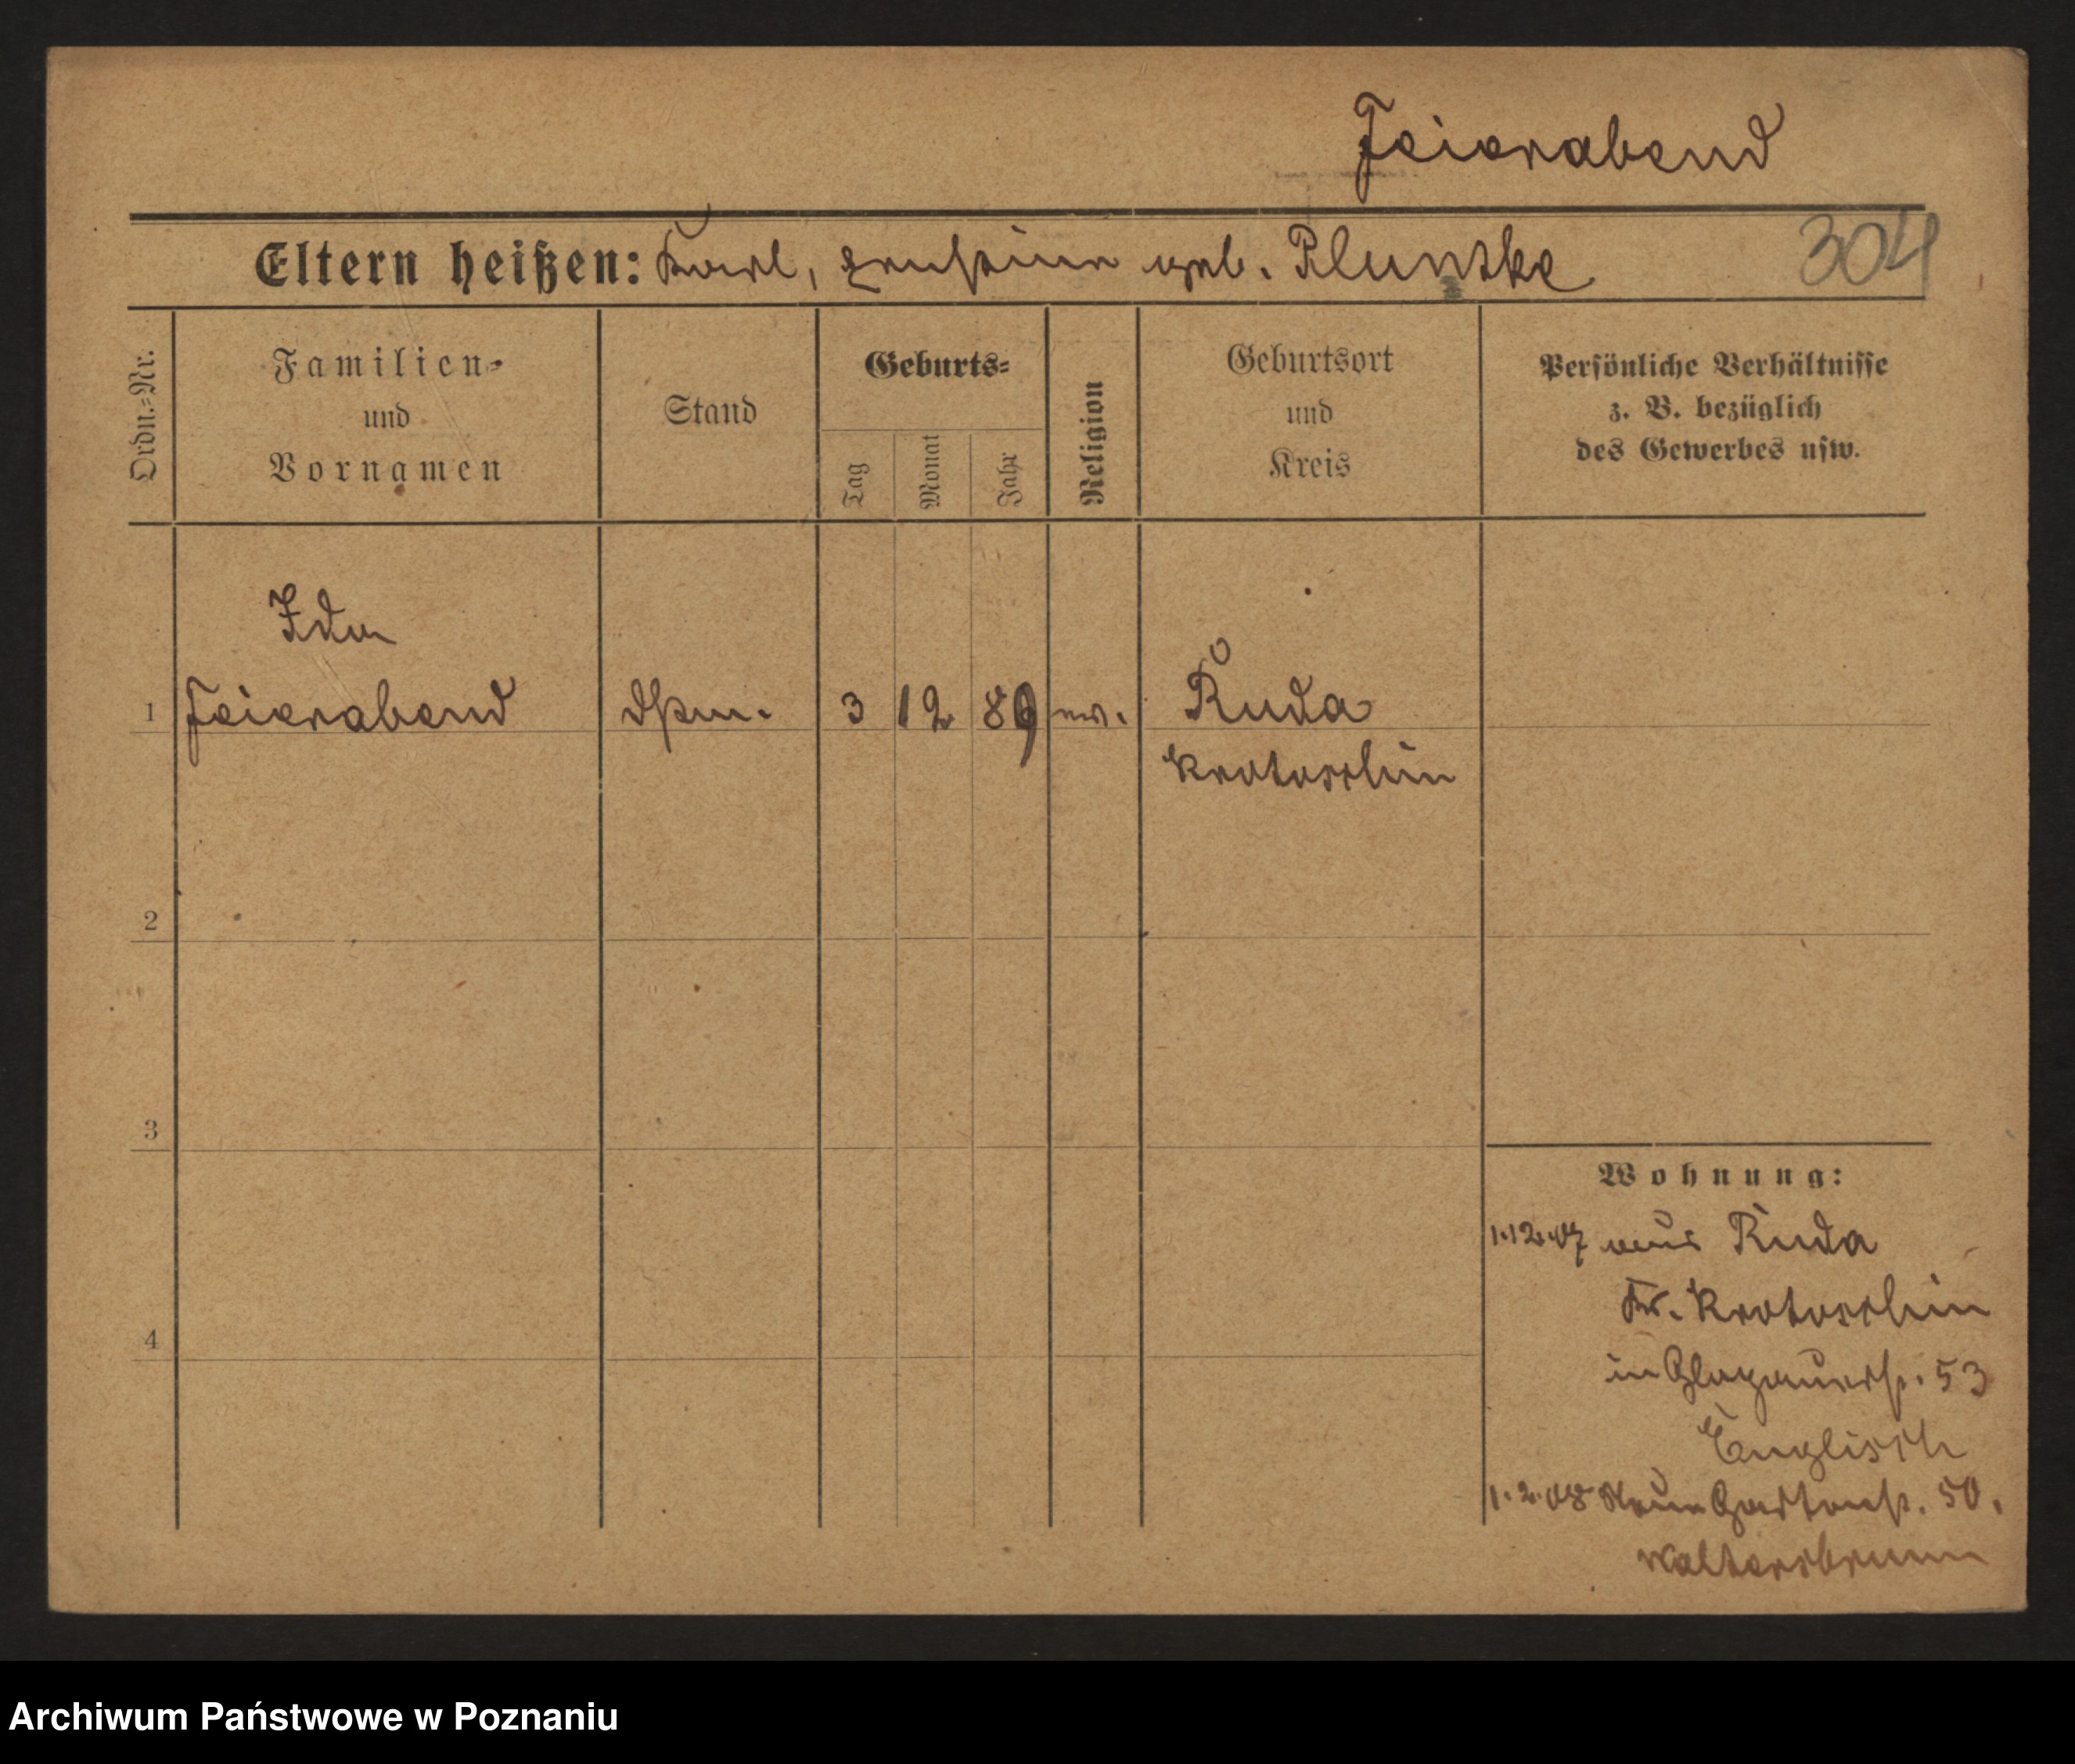 Feierabend
Eltern heißen: Karl, Ernstine geb. Pluntke
304
Ordn.-Nr.
Familien-
und
Vornamen
Stand
Geburts-
Tag
Monat
Jahr
Religion
Geburtsort
und
Kreis
Persönliche Verhältnisse
z. B. bezüglich
des Gewerbes usw.
Ida
1 Feierabend 3 12 89 ev. Ruda
Krotoschin
2
3
4
Wohnung:
1.12.07 aus Ruda
Kr. Krotoschin
in Glogauerstr. 53
Englisch
1.2.08 Neue Gartenstr. 50.
Waltersbrunn
Archiwum Państwowe w Poznaniu